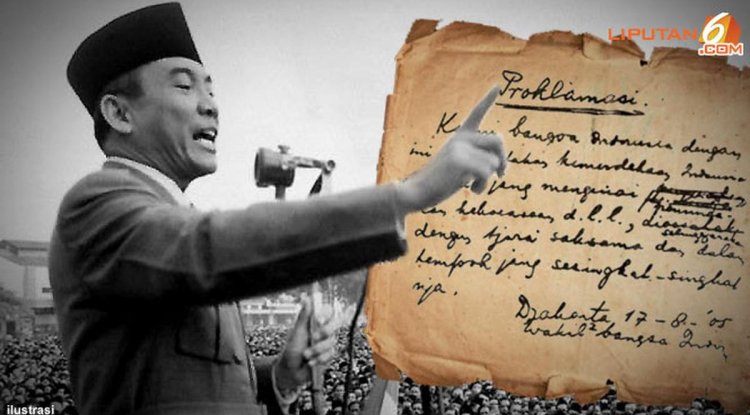 LIPUTAN6
.COM
Proklamasi.
Kami bangsa Indonesia dengan
ini kemerdekaan Indone
jang mengenai
kekoeasaan d.l.l.,
dengan tjara saksama dan dalam
tempoh jang sesingkat-singkat
nja.
Djakarta 17-8-'05
Wakil² bangsa Indon
ilustrasi